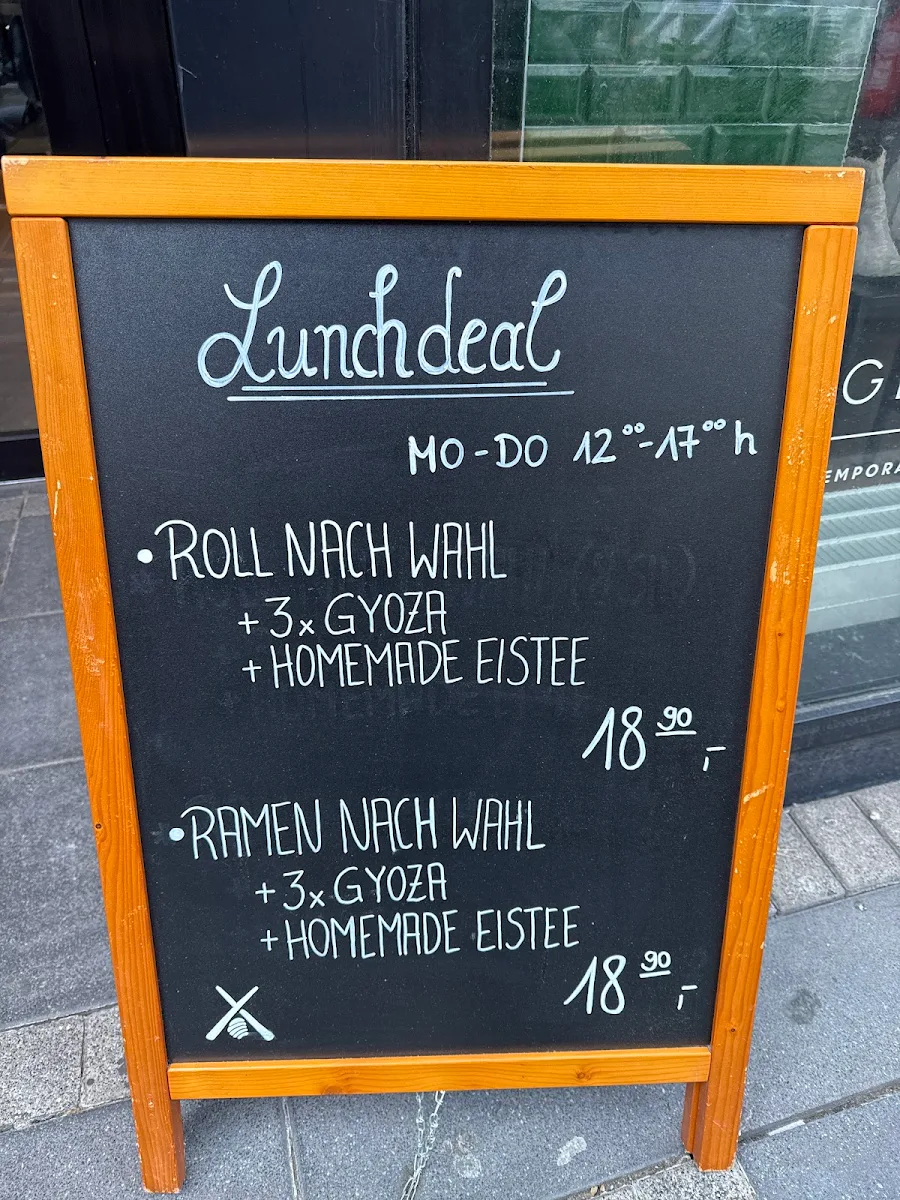 Lunchdeal
MO-DO 12⁰⁰-17⁰⁰ h
• ROLL NACH WAHL
+ 3x GYOZA
+ HOMEMADE EISTEE
18⁹⁰,-
• RAMEN NACH WAHL
+ 3x GYOZA
+ HOMEMADE EISTEE
18⁹⁰,-